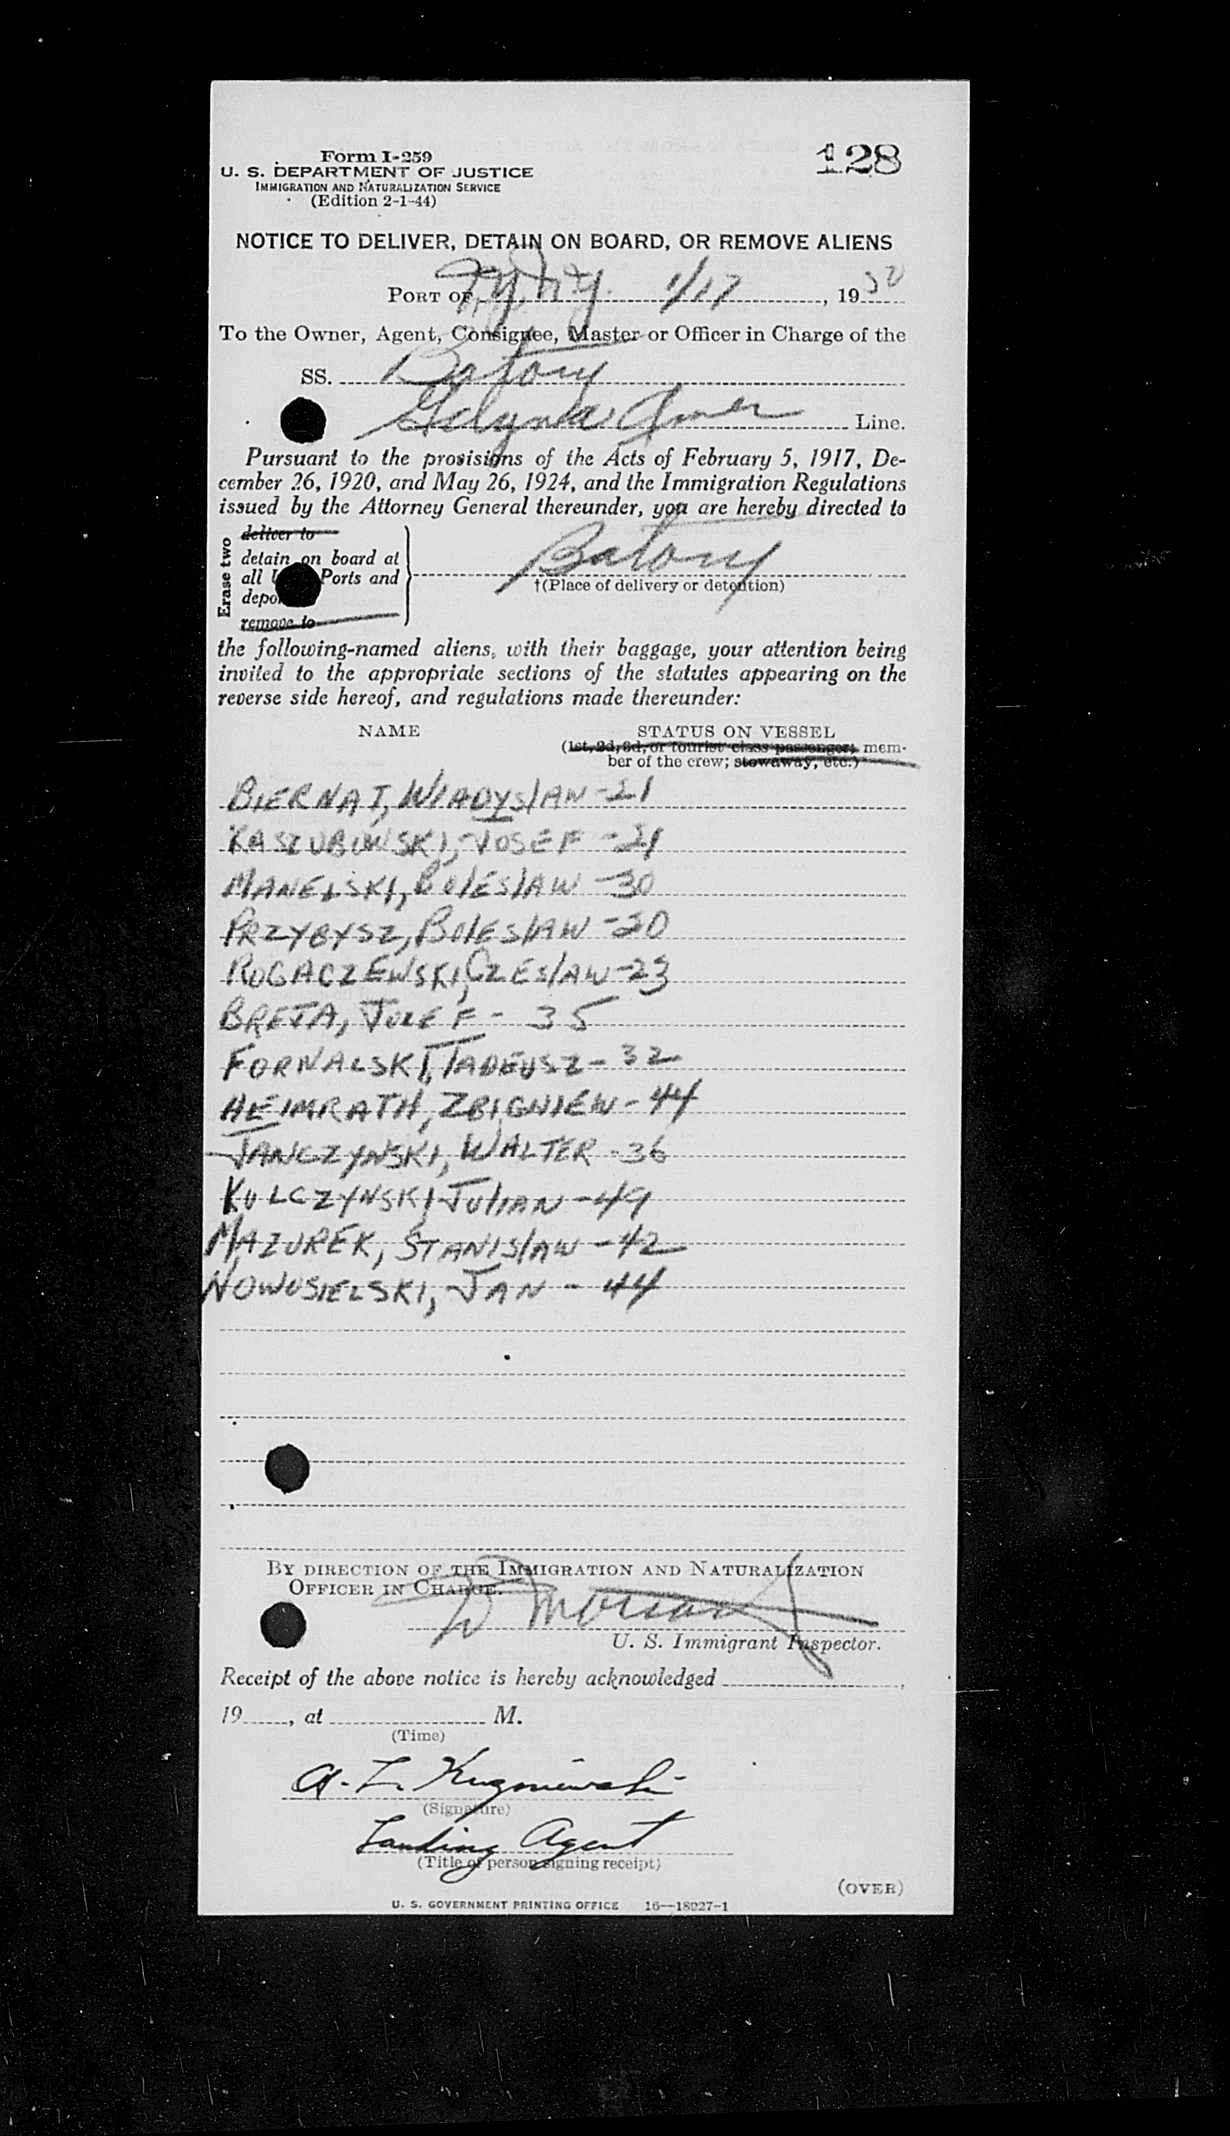 Form I-259
128
U. S. DEPARTMENT OF JUSTICE
IMMIGRATION AND NATURALIZATION SERVICE
(Edition 2-1-44)
NOTICE TO DELIVER, DETAIN ON BOARD, OR REMOVE ALIENS
PORT OF N.Y., N.Y. 1/17, 1950
To the Owner, Agent, Consignee, Master or Officer in Charge of the
SS. Batory
Gdynia Amer Line.
Pursuant to the provisions of the Acts of February 5, 1917, De-
cember 26, 1920, and May 26, 1924, and the Immigration Regulations
issued by the Attorney General thereunder, you are hereby directed to
Erase two
deliver to
detain on board at
all Ports and
remove to
Batory
†(Place of delivery or detention)
the following-named aliens, with their baggage, your attention being
invited to the appropriate sections of the statutes appearing on the
reverse side hereof, and regulations made thereunder:
NAME STATUS ON VESSEL
(1st, 2d, 3d, or tourist class passenger; mem-
ber of the crew; stowaway, etc.)
BIERNAT, WlADYSlAW - 21
KASZUBOWSKI, JOSEF - 21
MANELSKI, BOlESlAW - 30
PRZYBYSZ, BOlESlAW - 20
ROGACZEWSKI, CZESlAW - 23
BREJA, JOZEF - 35
FORNALSKI, TADEUSZ - 32
HEIMRATH, ZBIGNIEW - 44
JANCZYNSKI, WALTER - 36
KULCZYNSKI, JUlIAN - 49
MAZUREK, STANISlAW - 42
NOWOSIELSKI, JAN - 44
BY DIRECTION OF THE IMMIGRATION AND NATURALIZATION
OFFICER IN CHARGE.
U. S. Immigrant Inspector.
Receipt of the above notice is hereby acknowledged ,
19 , at M.
(Time)
A. L.
(Signature)
Landing Agent
(Title of person signing receipt)
(OVER)
U. S. GOVERNMENT PRINTING OFFICE 16—18027-1